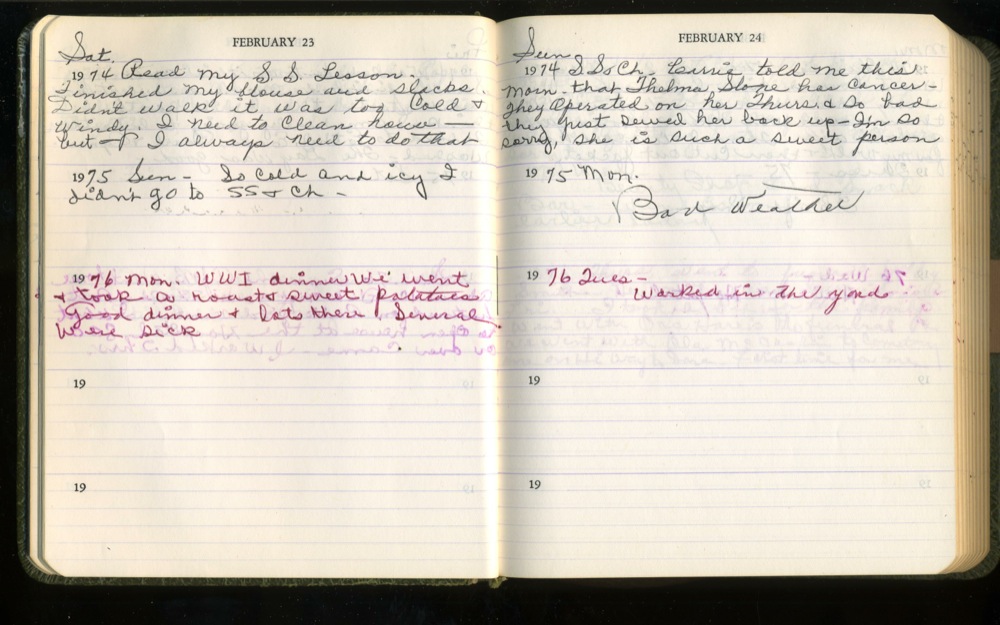 FEBRUARY 23
Sat.
1974 Read my S S. Lesson.
Finished my blouse and slacks.
Didn't walk it was too Cold &
Windy. I need to Clean house —
but I always need to do that
1975 Sun - So Cold and icy I
didn't go to SS & Ch -
1976 Mon. WWI dinner We went
& took a roast & sweet potatoes
Good dinner & lots there, Several
were sick
19
19
FEBRUARY 24
Sun
1974 S.S & Ch. told me this
Morn. that Thelma Stone has Cancer -
They Operated on her Thurs. & So bad
they just sewed her back up - I'm So
sorry, She is such a sweet person
1975 Mon.
Bad Weather
1976 Tues -
Worked in the yard
19
19